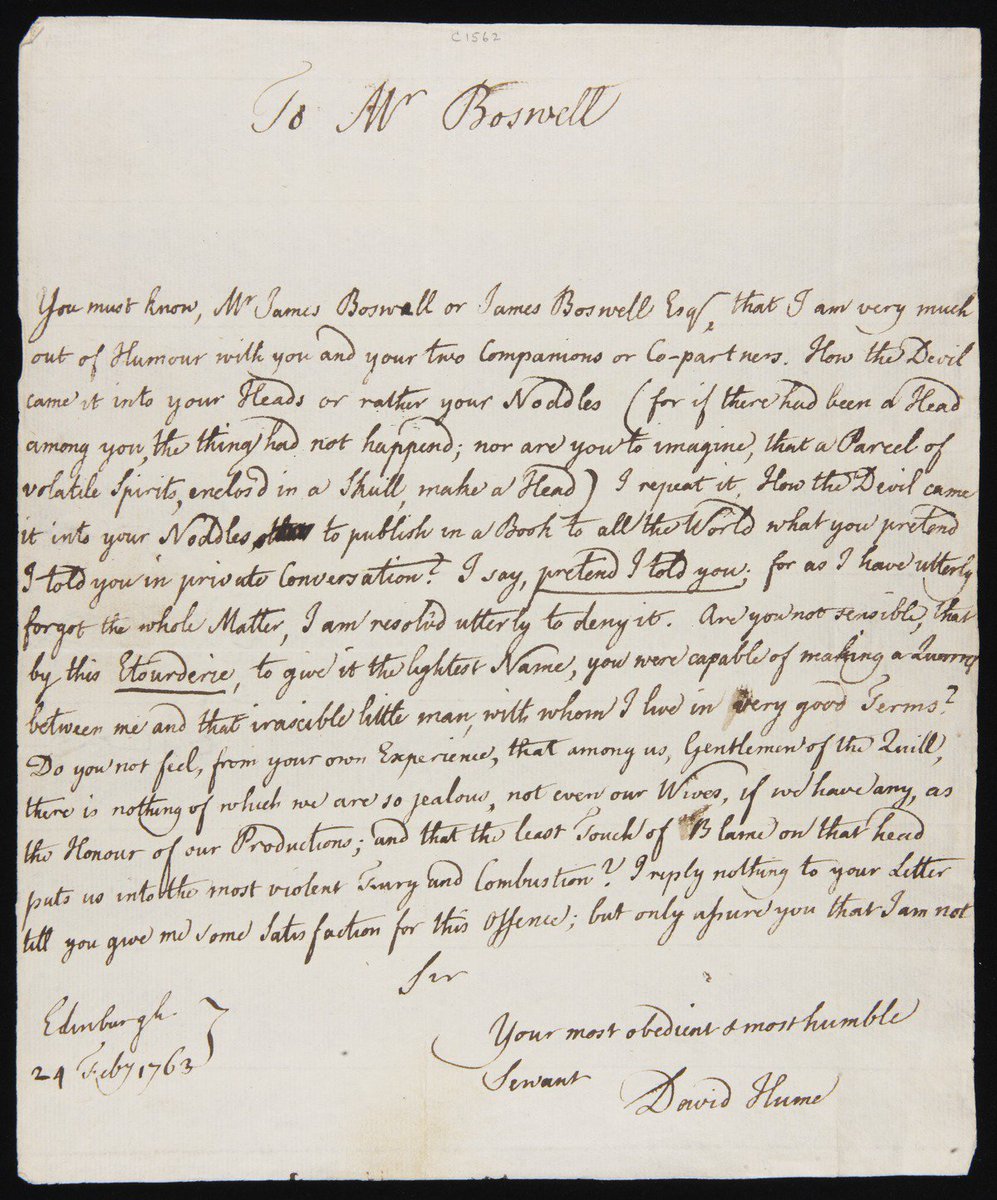 C1562
To Mr Boswell
You must know, Mr James Boswell or James Boswell Esqr, that I am very much
out of Humour with you and your two Companions or Co-partners. How the Devil
came it into your Heads or rather your Noddles (for if there had been a Head
among you, the thing had not happend; nor are you to imagine, that a Parcel of
volatile Spirits, enclos'd in a Skull, make a Head) I repeat it, How the Devil came
it into your Noddles, to publish in a Book to all the World what you pretend
I told you in private Conversation? I say, pretend I told you; for as I have utterly
forgot the whole Matter, I am resolv'd utterly to deny it. Are you not sensible, that
by this Etourderie, to give it the lightest Name, you were capable of making a Quarrel
between me and that irascible little man, with whom I live in very good Terms?
Do you not feel, from your own Experience, that among us, Gentlemen of the Quill,
there is nothing of which we are so jealous, not even our Wives, if we have any, as
the Honour of our Productions; and that the least Touch of Blame on that head
puts us into the most violent Fury and Combustion? I reply nothing to your Letter
till you give me some Satisfaction for this Offence; but only assure you that I am not
Sir
Your most obedient & most humble
Servant
David Hume
Edinburgh
24 Feby 1763